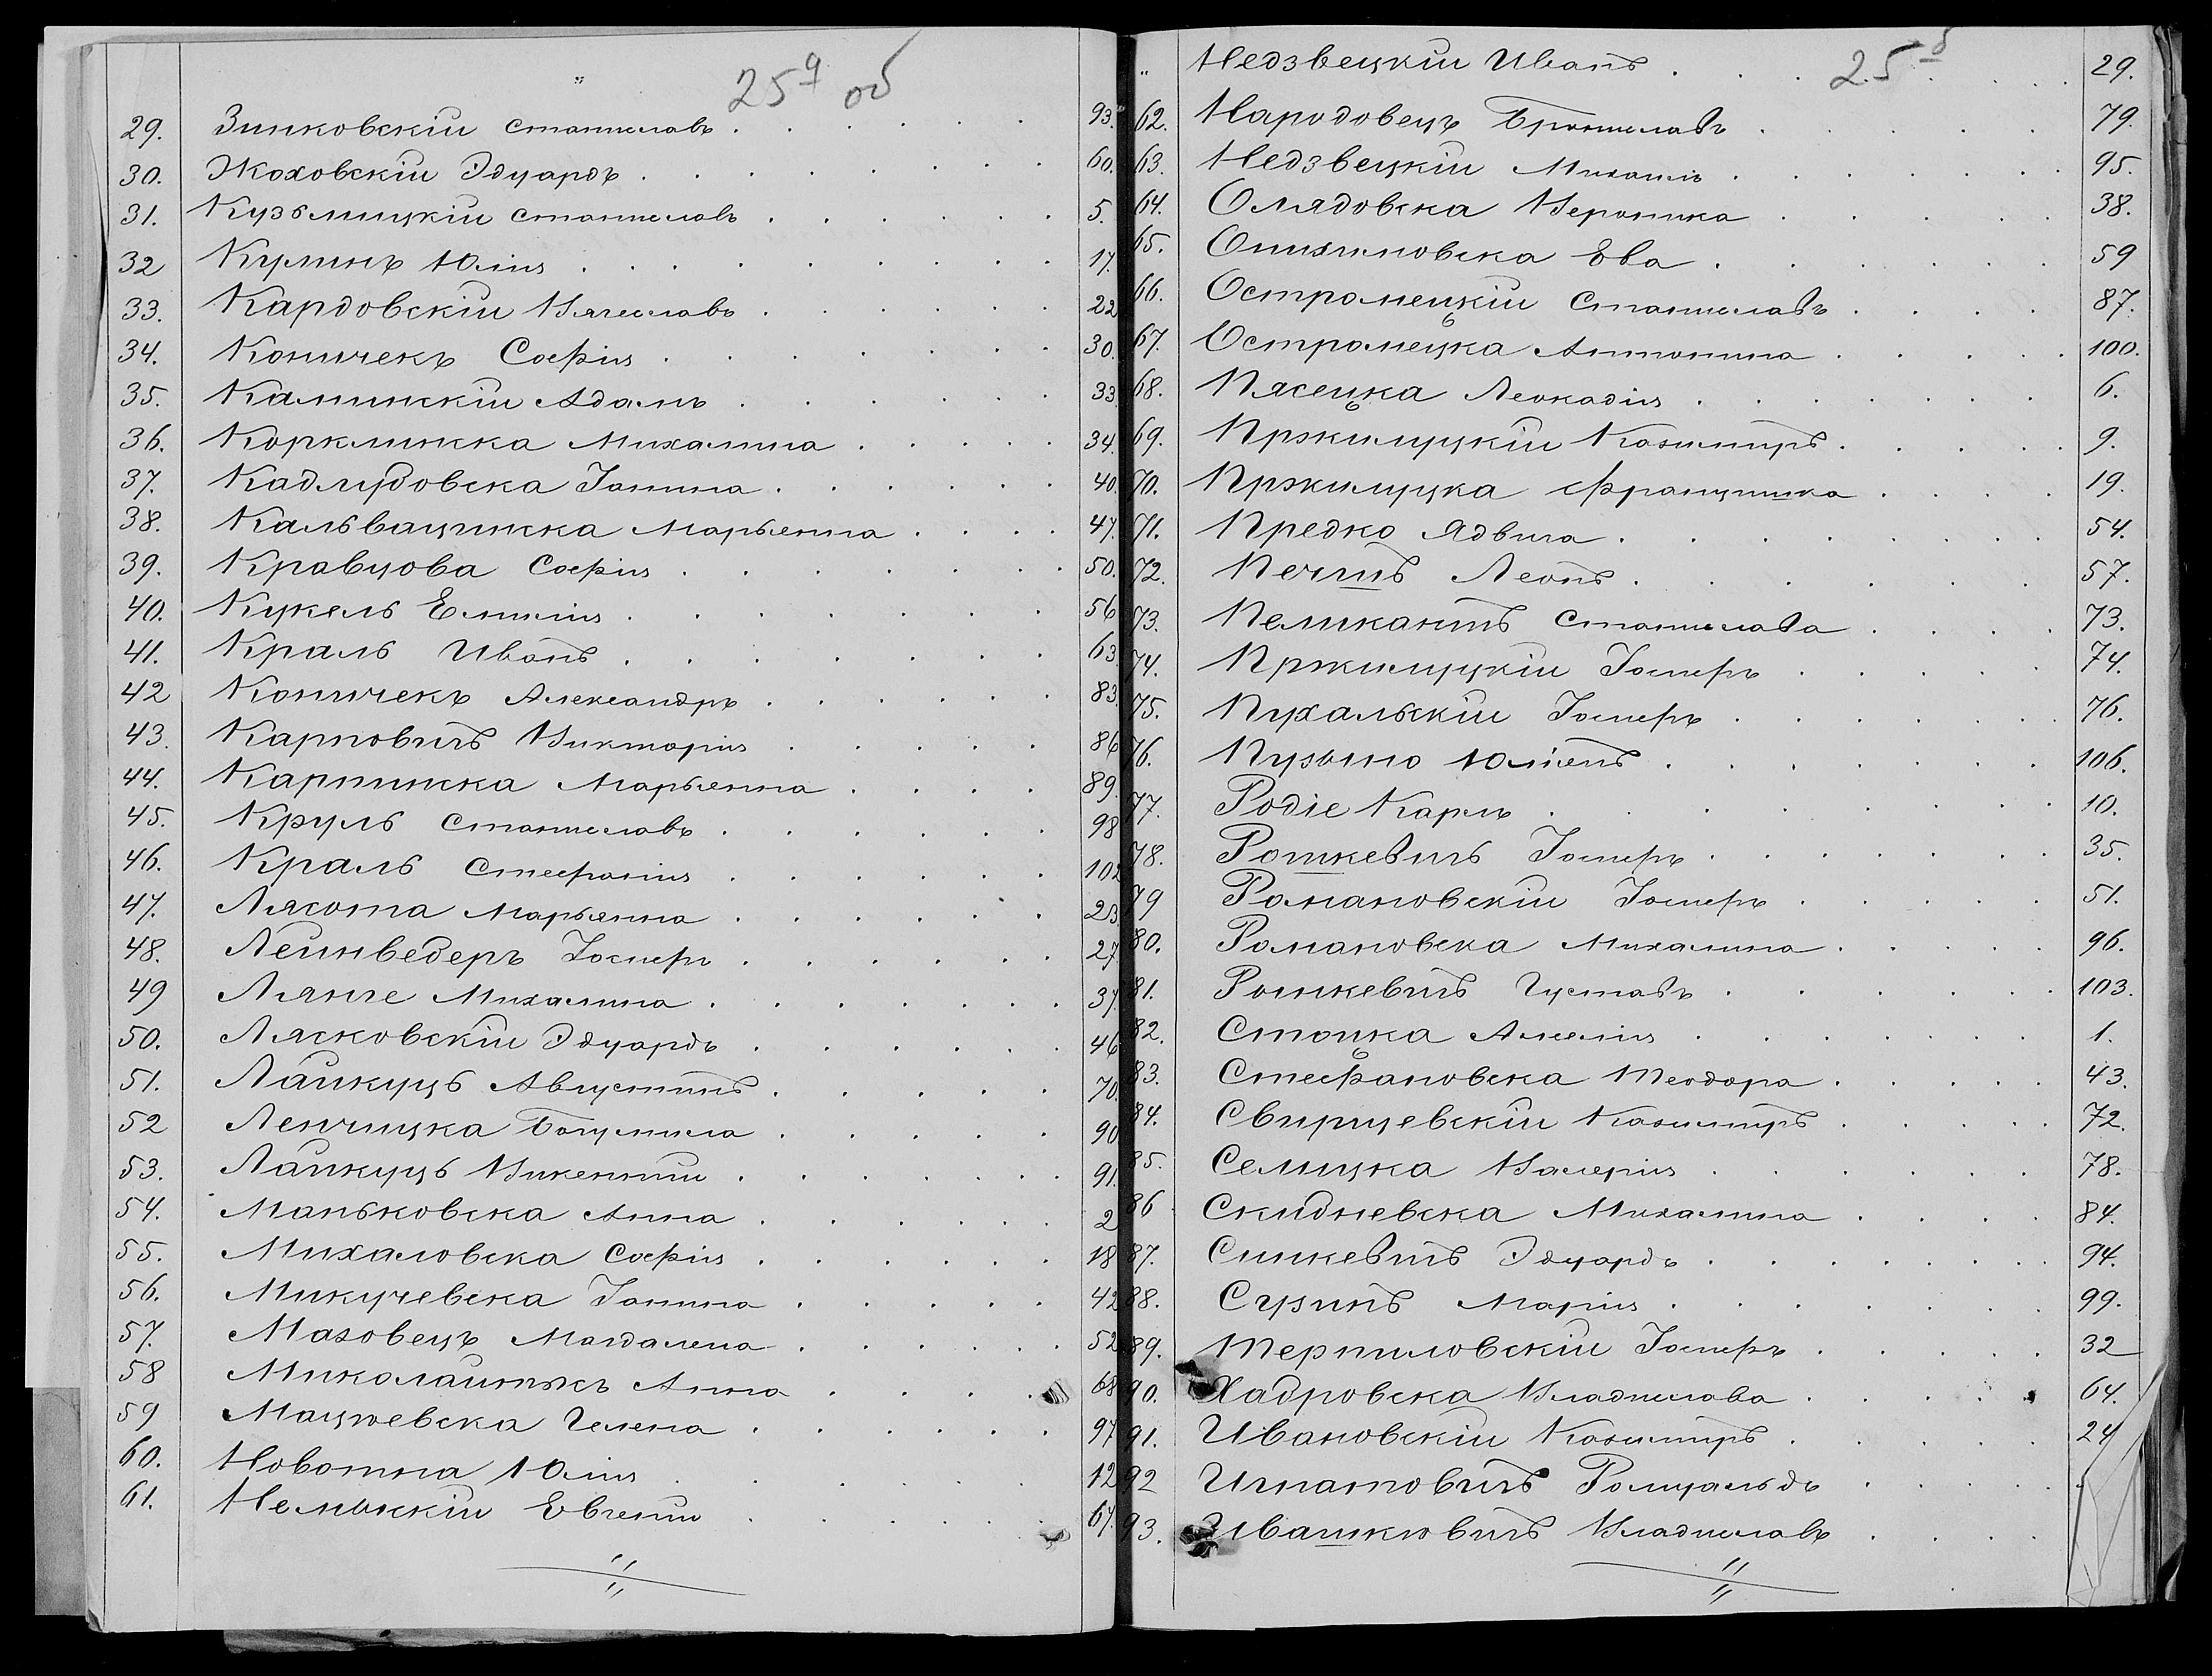 25а об
29. Зинковскій Станиславъ 93.
30. Жоховскій Эдуардъ 60.
31. Кузьмицкій Станиславъ 5.
32 Кулинъ Юлія 17.
33. Кардовскій Вячеславъ 22
34. Коничекъ Софія 30.
35. Калинскій Адамъ 33
36. Корклинска Михалина 34.
37. Кадлубовска Янина 40.
38. Кальвацинска Марьянна 47.
39. Кравцова Софія 50.
40. Кукель Емилія 56
41. Краль Иванъ 63
42 Коничекъ Александръ 83.
43. Карповичъ Викторія 86
44. Карпинска Марьянна 89.
45. Круль Станиславъ 98
46. Краль Стефанія 102
47. Лясота Марьянна 23
48. Лейнведеръ Іосифъ 27
49 Лянге Михалина 37.
50. Лясковскій Эдуардъ 46
51. Лайкуцъ Августинъ 70.
52 Ленчицка Богумила 90
53. Лайкуцъ Викентій 91.
54. Маньковска Анна 2
55. Михаловска Софія 18
56. Микучевска Янина 42
57. Мазовецъ Магдалена 52
58 Миколайтысъ Анна 68
59 Мацѣевска Гелена 97
60. Новотна Юлія 12
61. Немыскій Евгеній 67.
" Недзвецкій Иванъ 29.
25б
62. Народовецъ Брониславъ 79.
63. Недзвецкій Михаилъ 95.
64. Олядовска Вероника 38.
65. Опихиновска Ева 59
66. Остромецкій Станиславъ 87.
67. Остромецка Антонина 100.
68. Пясецка Леокадія 6.
69. Пржилуцкій Казимиръ 9.
70. Пржилуцка Францишка 19.
71. Предко Ядвига 54.
72. Печипъ Леонъ 57.
73. Пеликантъ Станислава 73.
74. Пржилуцкій Іосифъ 74.
75. Пухальскій Іосифъ 76.
76. Пузыно Юліанъ 106.
77. Родіе Карлъ 10.
78. Рошкевичъ Іосифъ 35.
79 Романовскій Іосифъ 51.
80. Романовска Михалина 96.
81. Рошкевичъ Густавъ 103.
82. Стоцка Амелія 1.
83. Стефановска Теодора 43.
84. Свирщевскій Казимиръ 72.
85. Семицка Валерія 78.
86 Скидневска Михалина 84.
87. Синкевичъ Эдуардъ 94.
88. Сузинъ Марія 99.
89. Терпиловскій Іосифъ 32
90. Хадровска Владислава 64.
91. Ивановскій Казимиръ 24
92 Игнатовичъ Ромуальдъ
93. Ивашкѣвичъ Владиславъ